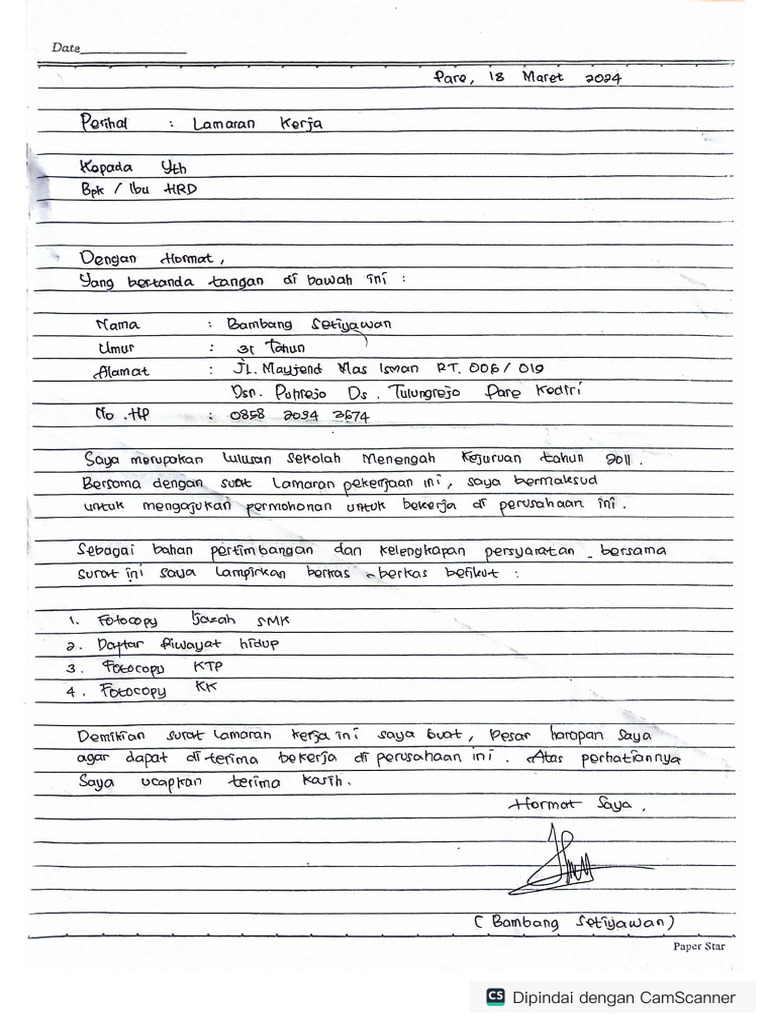 Date
Pare, 18 Maret 2024
Perihal : Lamaran Kerja
Kepada Yth
Bpk / Ibu HRD
Dengan Hormat,
Yang bertanda tangan di bawah ini :
Nama : Bambang Setiyawan
Umur : 31 Tahun
Alamat : JL. Mayjend Mas Isman RT. 006 / 019
Dsn. Puhrejo Ds. Tulungrejo Pare Kediri
No .HP : 0858 2034 3674
Saya merupakan lulusan Sekolah Menengah Kejuruan tahun 2011.
Bersama dengan surat Lamaran pekerjaan ini, saya bermaksud
untuk mengajukan permohonan untuk bekerja di perusahaan ini.
Sebagai bahan pertimbangan dan kelengkapan persyaratan. bersama
surat ini saya lampirkan berkas - berkas berikut :
1. Fotocopy Ijazah SMK
2. Daftar Riwayat hidup
3. Fotocopy KTP
4. Fotocopy KK
Demikian surat lamaran kerja ini saya buat, besar harapan saya
agar dapat di terima bekerja di perusahaan ini. Atas perhatiannya
Saya ucapkan terima kasih.
Hormat Saya,
( Bambang Setiyawan )
Paper Star
CS Dipindai dengan CamScanner